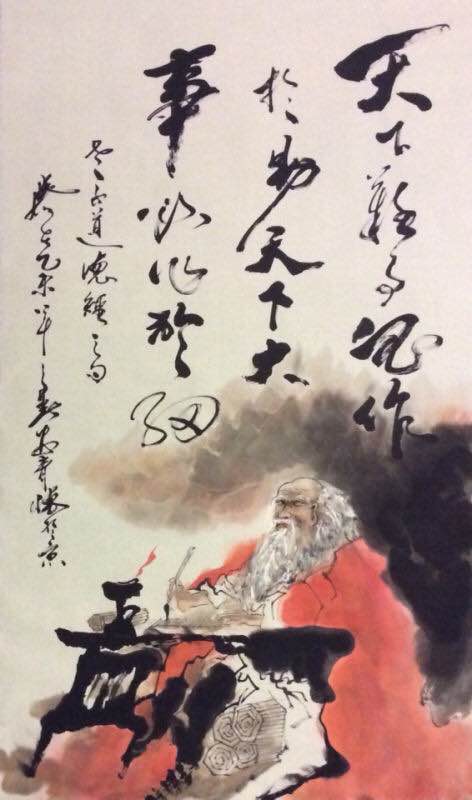 天下難事必作
於易天下大
事必作於細
老子道德經之句
乙未年之